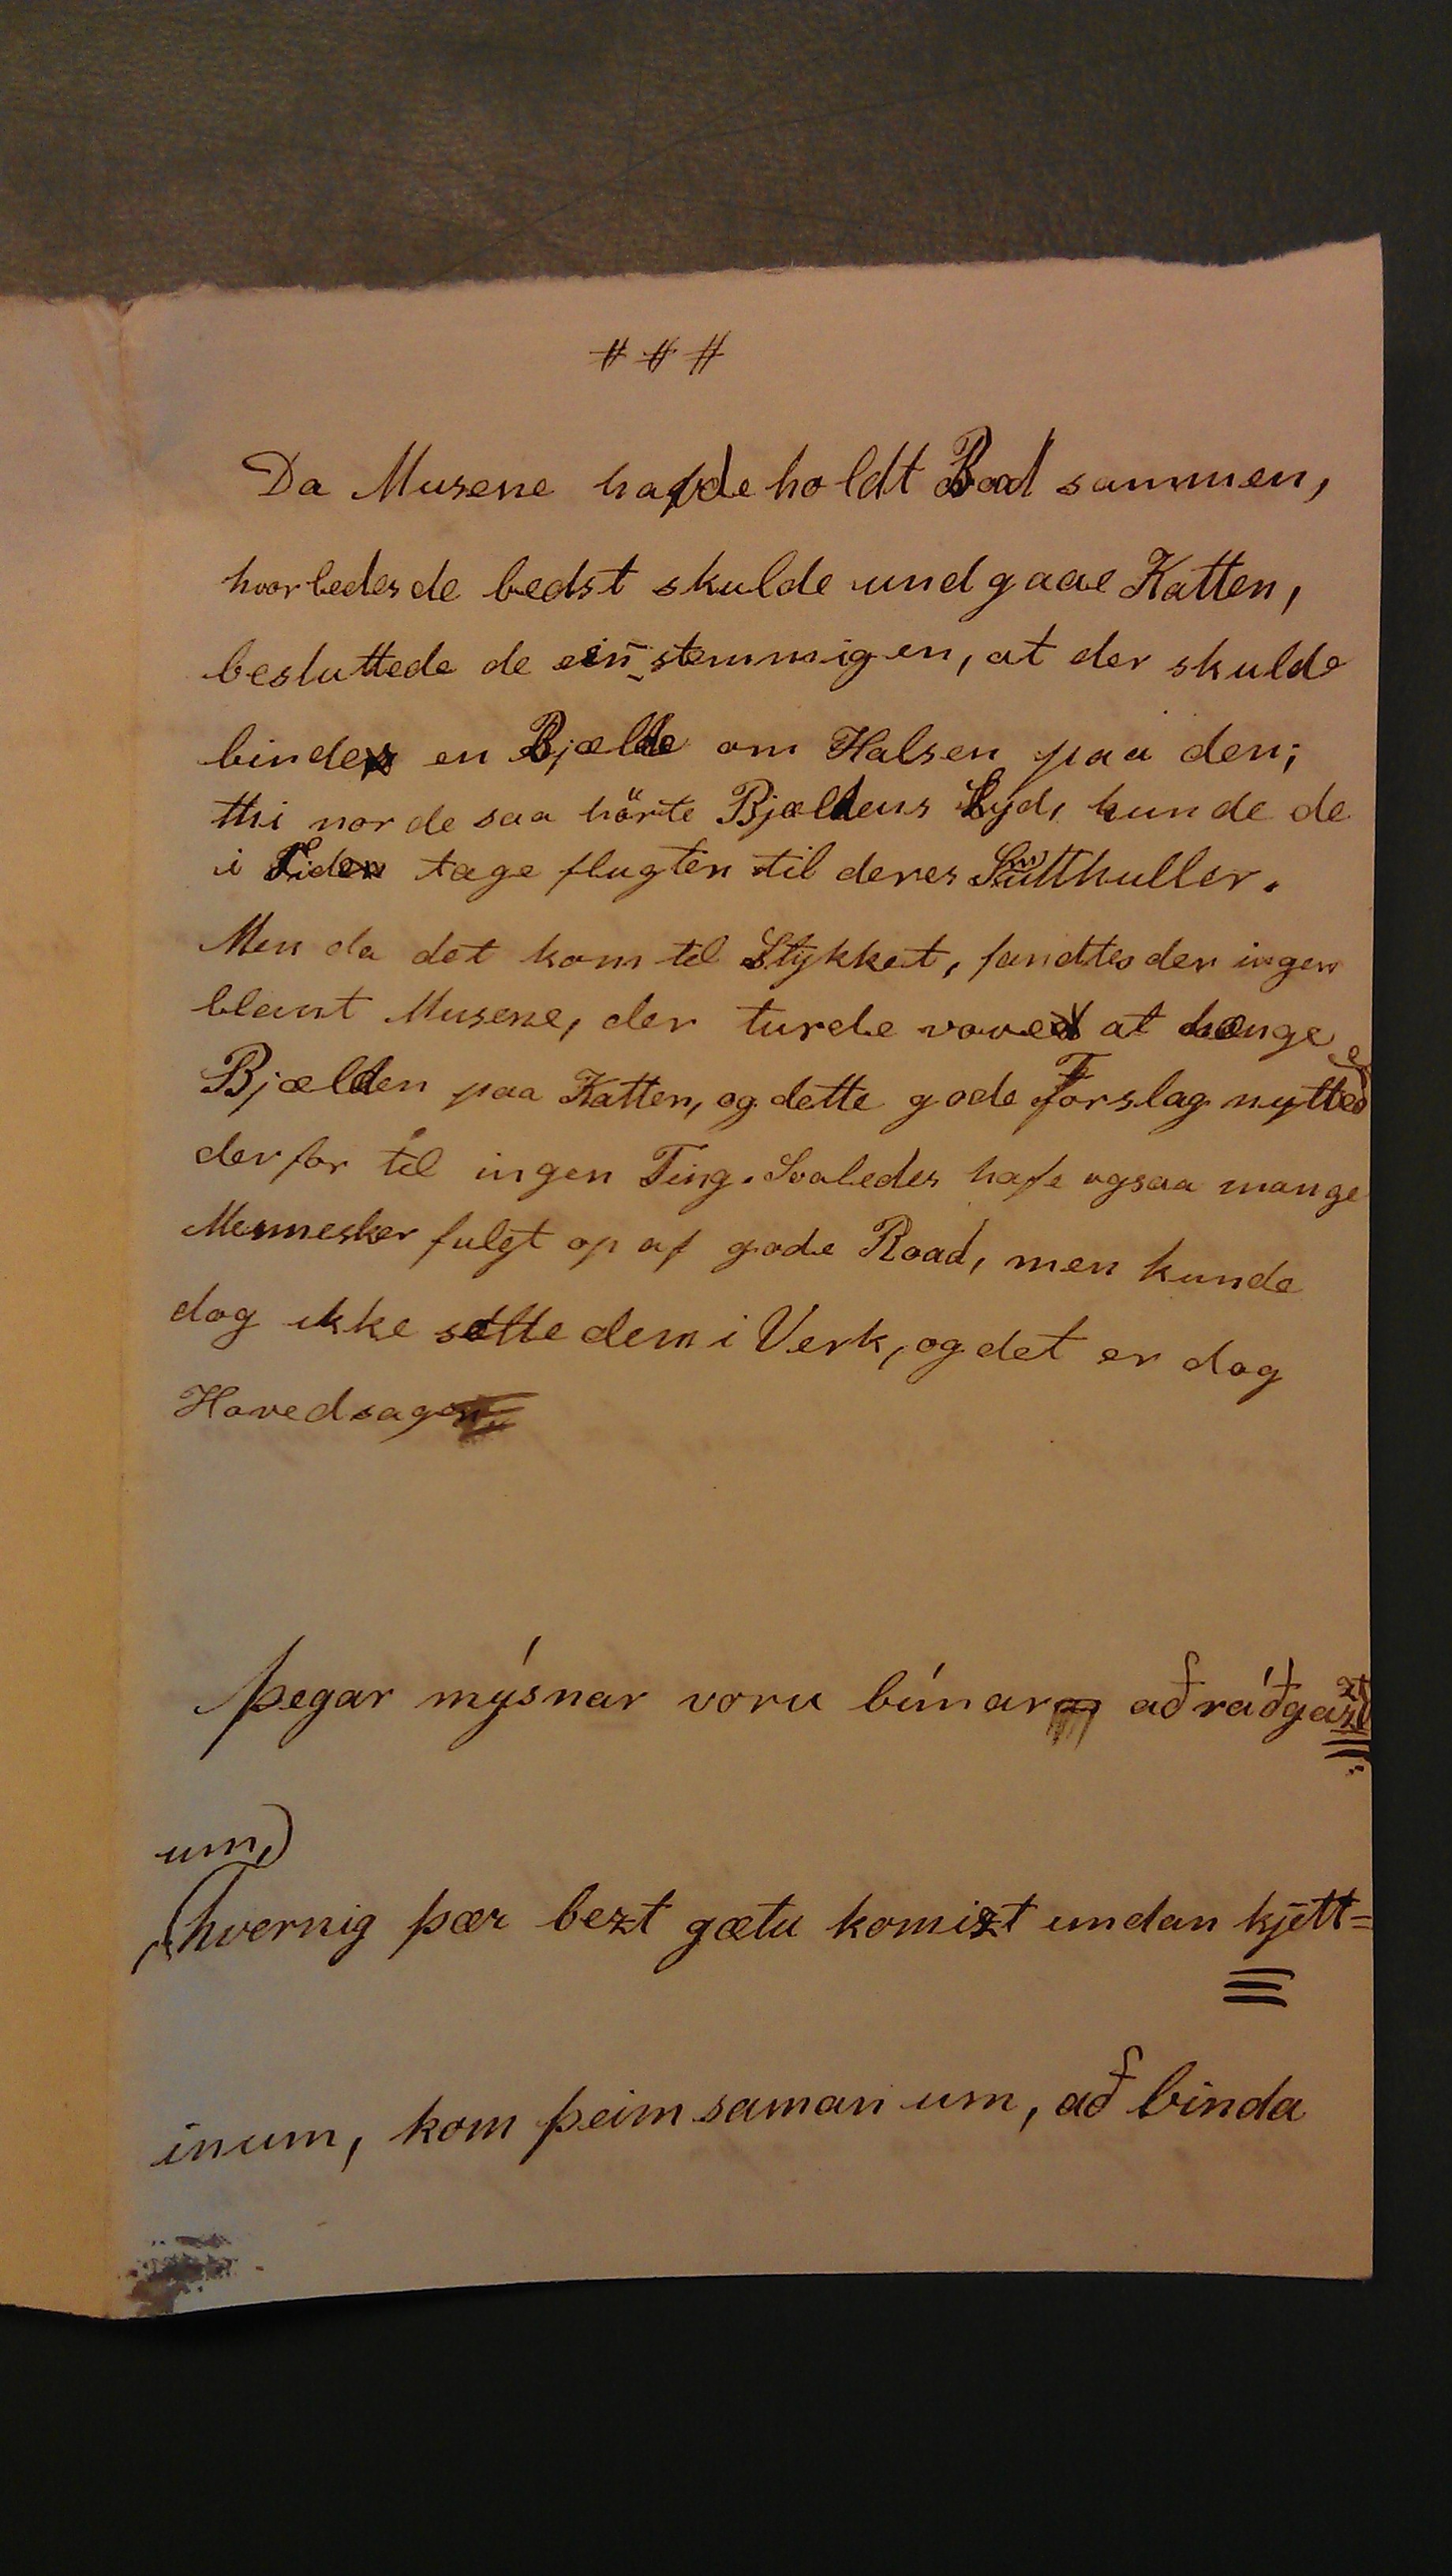 # # #
Da Musene hafde holdt Raad sammen,
hvorledes de bedst skulde undgaae Katten,
besluttede de einstemmigen, at der skulde
bindes en Bjælde om Halsen paa den;
thi nor de saa hörte Bjældens Lyd, kunde de
i Tiden tage flugten til deres Smutthuller.
Men da det kom til Stykket, fandtes der ingen
blant Musene, der turde vove at hænge
Bjælden paa Katten, og dette gode Forslag nyttede
derfor til ingen Ting. Soaledes hafe ogsaa mange
Mennesker fulgt op af gode Road, men kunde
dog ikke sette dem i Verk, og det er dog
Hovedsagen
Þegar mýsnar voru búnar að ráðgazt
um,
hvernig þær bezt gætu komizt undan kjett=
inum, kom þeim saman um, að binda